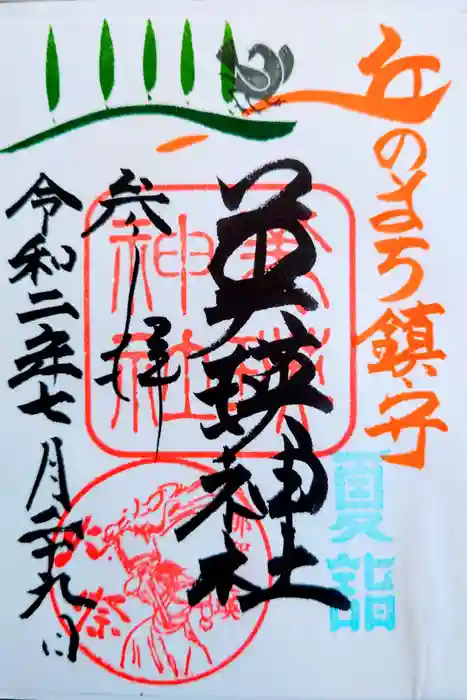 丘のまち鎮守
夏詣
美瑛神社
美瑛神社
参拝
令和二年七月二十九日
火祭